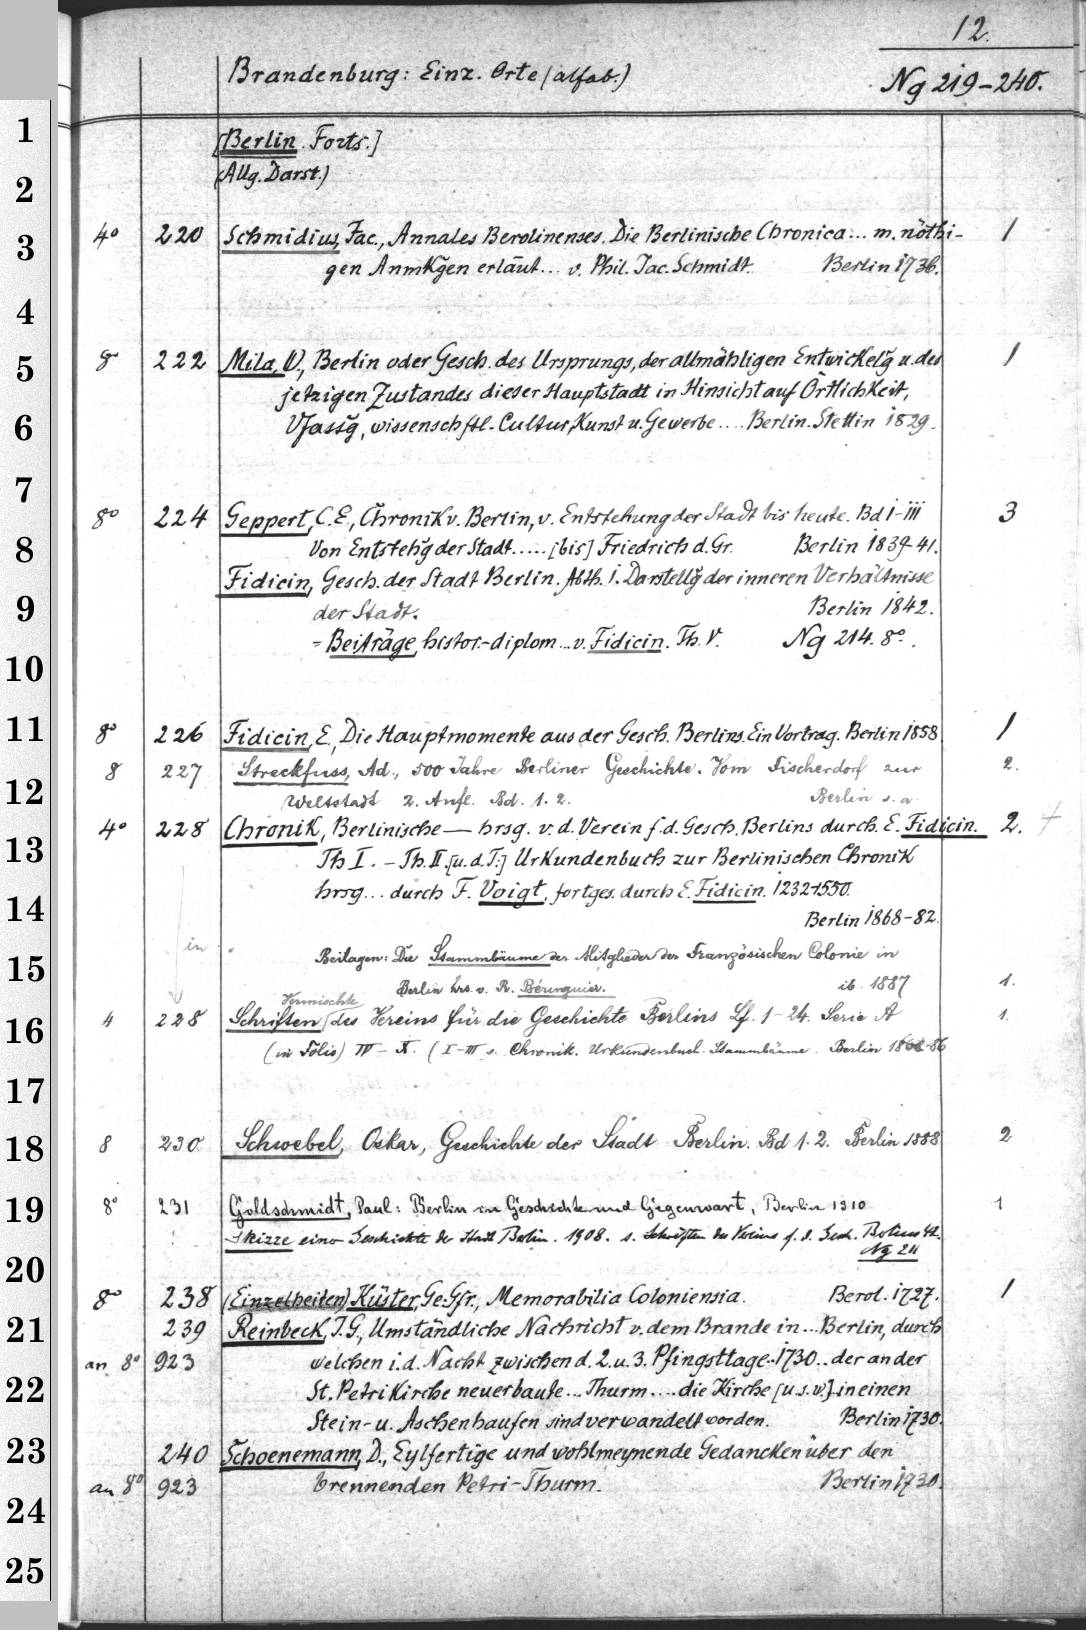 12.
Brandenburg: Einz. Orte (alfab.) Ng 219-240.
1
[Berlin. Forts.]
2
(Allg. Darst.)
3
4° 220 Schmidius, Jac., Annales Berolinenses. Die Berlinische Chronica... m. nöthi- 1
gen Anmkgen erläut... v. Phil. Jac. Schmidt. Berlin 1736.
4
5
8° 222 Mila, W., Berlin oder Gesch. des Ursprungs, der allmähligen Entwickelg u. des 1
jetzigen Zustandes dieser Hauptstadt in Hinsicht auf Örtlichkeit,
6
Vfassg, wissenschftl. Cultur, Kunst u. Gewerbe .... Berlin. Stettin 1829.
7
8° 224 Geppert, C. E., Chronik v. Berlin, v. Entstehung der Stadt bis heute. Bd I-III 3
8
Von Entstehg der Stadt..... [bis] Friedrich d. Gr. Berlin 1839-41.
Fidicin, Gesch. der Stadt Berlin. Abth. I. Darstellg der inneren Verhältnisse
9
der Stadt. Berlin 1842.
= Beiträge, histor.-diplom... v. Fidicin. Th. V. Ng 214. 8°.
10
11
8° 226 Fidicin, E., Die Hauptmomente aus der Gesch. Berlins. Ein Vortrag. Berlin 1858. 1
8 227 Streckfuss, Ad., 500 Jahre Berliner Geschichte. Vom Fischerdorf zur 2.
12
Weltstadt 2. Aufl. Bd. 1. 2. Berlin s. a.
4° 228 Chronik, Berlinische — hrsg. v. d. Verein f. d. Gesch. Berlins durch E. Fidicin. 2. +
13
Th I. - Th. II. [u. d. T:] Urkundenbuch zur Berlinischen Chronik
hrsg... durch F. Voigt, fortges. durch E. Fidicin. 1232-1550.
14
Berlin 1868-82.
in
15
Beilagen: Die Stammbäume der Mitglieder der Französischen Colonie in
Berlin hrs. v. R. Béringuier. ib. 1887 1.
Vermischte
16
4 228 Schriften des Vereins für die Geschichte Berlins Lf. 1-24. Serie A 1.
(in Folio) IV - X. (I-III s. Chronik. Urkundenbuch. Stammbäume. Berlin 18 -86
17
18
8 230 Schwebel, Oskar, Geschichte der Stadt Berlin. Bd 1. 2. Berlin 1888 2
19
8° 231 Goldschmidt, Paul: Berlin in Geschichte und Gegenwart, Berlin 1910 1
Skizze einer Geschichte der Stadt Berlin. 1908. s. Schriften des Vereins f. d. Gesch. Berlins 42.
Ng 211
20
8° 238 (Einzelheiten) Küster, Ge. Gfr., Memorabilia Coloniensia. Berol. 1727. 1
21
239 Reinbeck, J. G., Umständliche Nachricht v. dem Brande in... Berlin, durch
an 8° 923 welchen i. d. Nacht zwischen d. 2. u. 3. Pfingsttage.. 1730.. der an der
22
St. Petri Kirche neuerbaute... Thurm .... die Kirche [u. s. w.] in einen
Stein- u. Aschenhaufen sind verwandelt worden. Berlin 1730.
23
240 Schoenemann, D., Eylfertige und wohlmeynende Gedancken über den
an 8° 923 brennenden Petri-Thurm. Berlin 1730.
24
25